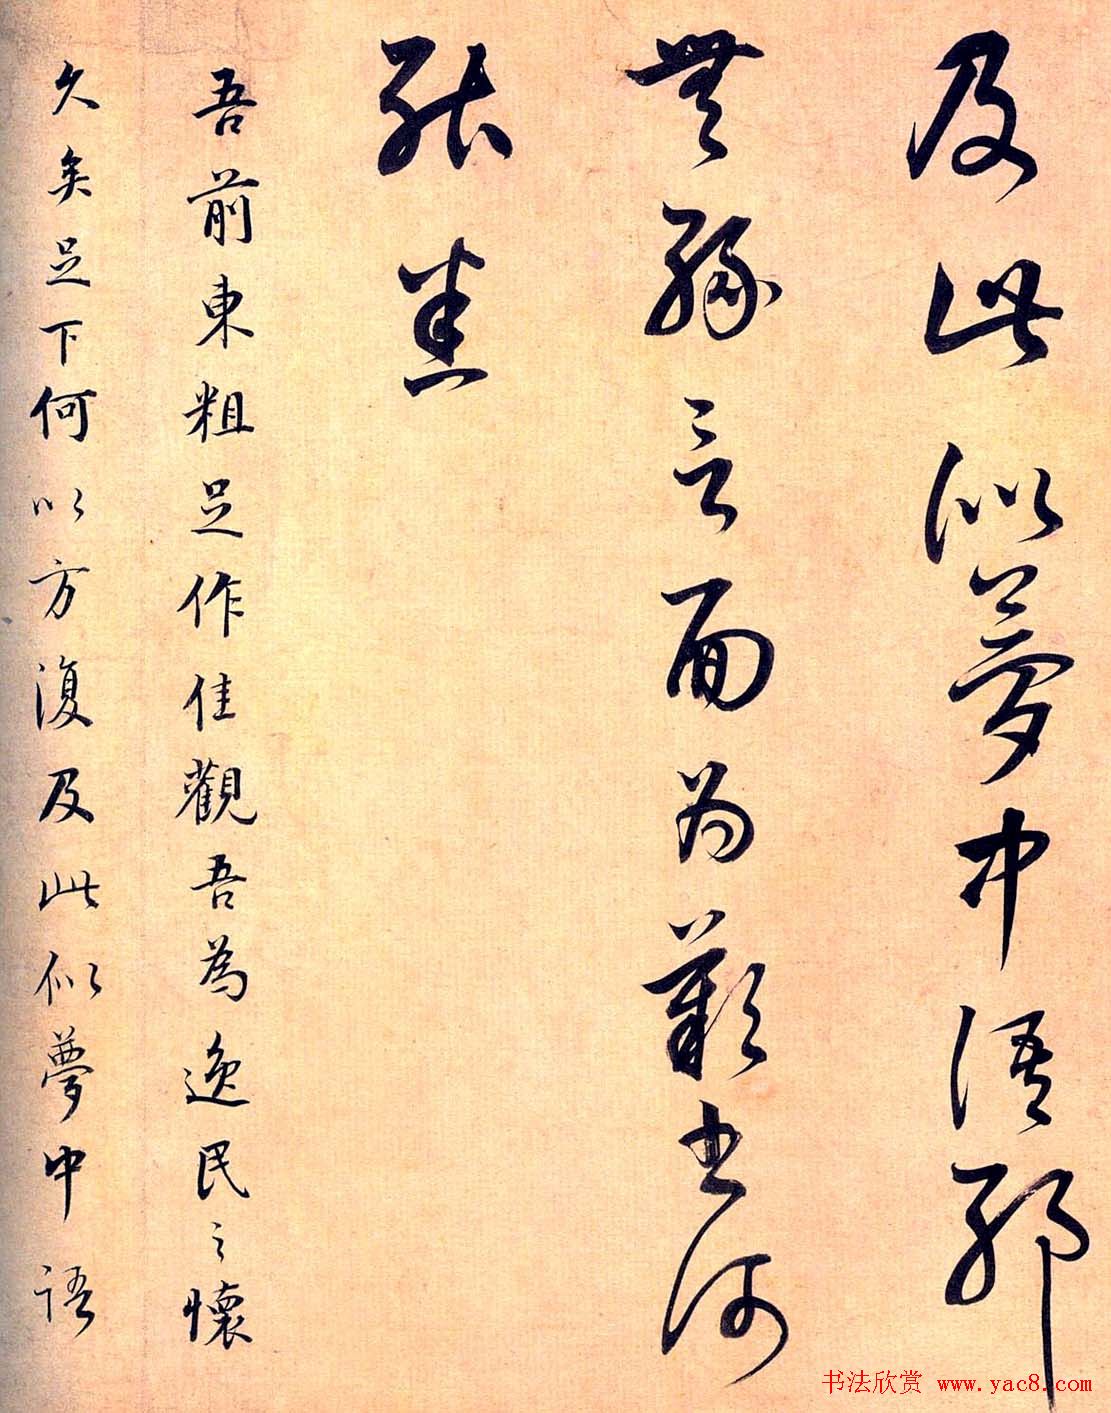 及此似夢中語耶
無緣言面為歎書何
能悉
吾前東粗足作佳觀吾為逸民之懷
久矣足下何以方復及此似夢中語
书法欣赏 www.yac8.com